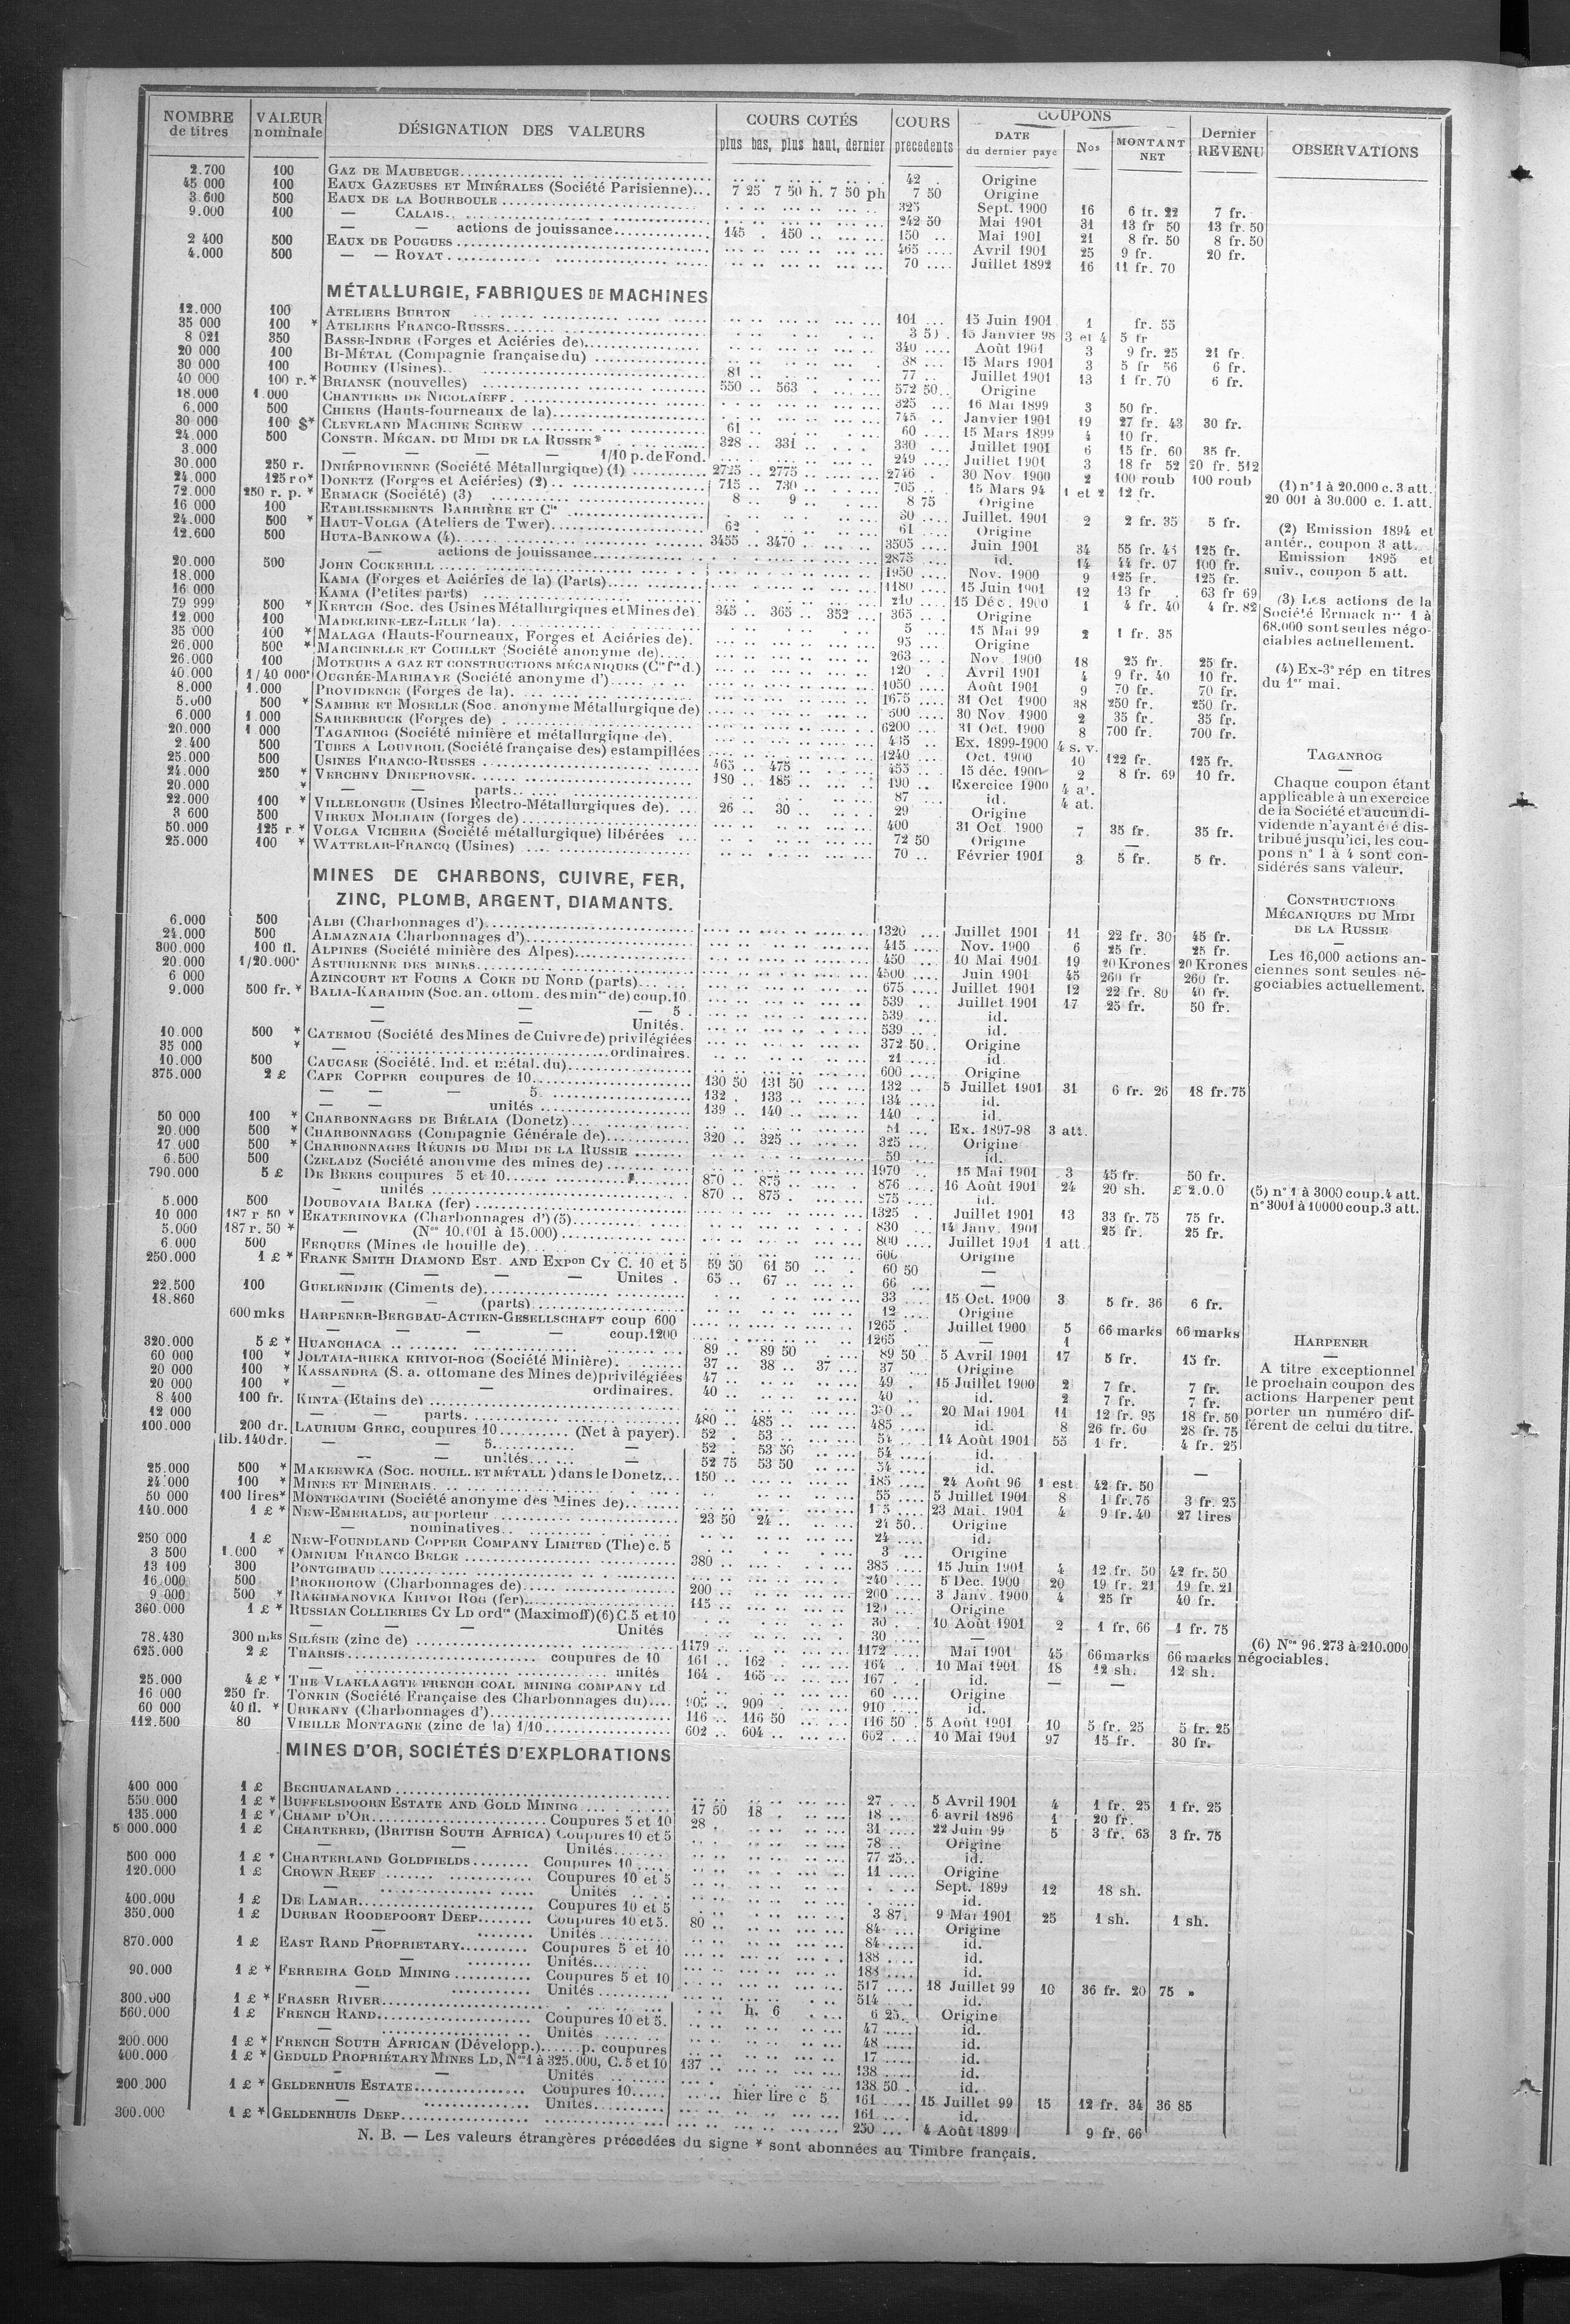 NOMBRE de titres VALEUR nominale DÉSIGNATION DES VALEURS COURS COTÉS plus bas, plus haut, dernier COURS precedents COUPONS DATE du dernier payé Nos MONTANT NET Dernier REVENU OBSERVATIONS
2.700 100 GAZ DE MAUBEUGE 42 Origine
45 000 100 EAUX GAZEUSES ET MINÉRALES (Société Parisienne) 7 25 7 50 h. 7 50 ph 7 50 Origine
3.600 500 EAUX DE LA BOURBOULE 325 Sept. 1900 16 6 fr. 22 7 fr.
9.000 100 — CALAIS 242 50 Mai 1901 31 13 fr 50 13 fr. 50
— — actions de jouissance 145 150 150 Mai 1901 21 8 fr. 50 8 fr. 50
2 400 500 EAUX DE POUGUES 465 Avril 1901 25 9 fr. 20 fr.
4.000 500 — — ROYAT 70 Juillet 1892 16 11 fr. 70
MÉTALLURGIE, FABRIQUES DE MACHINES
12.000 100 ATELIERS BURTON 101 15 Juin 1901 1 fr. 55
35 000 100 * ATELIERS FRANCO-RUSSES 15 Janvier 98 3 et 4 5 fr
8 021 350 BASSE-INDRE (Forges et Aciéries de) 340 Août 1901 3 9 fr. 25 21 fr.
20 000 100 BI-MÉTAL (Compagnie française du) 38 15 Mars 1901 3 5 fr 56 6 fr.
30 000 100 BOUHEY (Usines) 81 77 Juillet 1901 13 1 fr. 70 6 fr.
40 000 100 r.* BRIANSK (nouvelles) 550 563 572 50 Origine
18.000 1.000 CHANTIERS DE NICOLAÏEFF 325 16 Mai 1899 3 50 fr.
6.000 500 CHIERS (Hauts-fourneaux de la) 745 Janvier 1901 19 27 fr. 43 30 fr.
30 000 100 $* CLEVELAND MACHINE SCREW 61 60 15 Mars 1899 4 10 fr.
24.000 500 CONSTR. MÉCAN. DU MIDI DE LA RUSSIE * 328 331 330 Juillet 1901 6 15 fr. 60 35 fr.
3.000 — — — — 1/10 p. de Fond. 249 Juillet 1901 3 18 fr 52 20 fr. 512
30.000 250 r. DNIÉPROVIENNE (Société Métallurgique) (1) 2725 2775 2746 30 Nov. 1900 2 100 roub 100 roub
24.000 125 ro* DONETZ (Forges et Aciéries) (2) 715 730 705 15 Mars 94 1 et 2 12 fr.
72.000 250 r. p. * ERMACK (Société) (3) 8 9 8 75 Origine
16 000 100 ETABLISSEMENTS BARRIÈRE ET Cie 30 Juillet. 1901 2 2 fr. 35 5 fr.
24.000 500 * HAUT-VOLGA (Ateliers de Twer) 62 61 Origine
12.600 500 HUTA-BANKOWA (4) 3455 3470 3505 Juin 1901 34 55 fr. 43 125 fr.
— actions de jouissance 2875 id. 14 44 fr. 07 100 fr.
20.000 500 JOHN COCKERILL 1950 Nov. 1900 9 125 fr. 125 fr.
18.000 KAMA (Forges et Aciéries de la) (Parts) 1180 15 Juin 1901 12 13 fr 63 fr 69
16 000 KAMA (Petites parts) 210 15 Déc. 1900 1 4 fr. 40 4 fr. 82
79 999 500 * KERTCH (Soc. des Usines Métallurgiques et Mines de) 345 365 352 365 Origine
12.000 100 MADELEINE-LEZ-LILLE (la) 5 15 Mai 99 2 1 fr. 35
35 000 100 * MALAGA (Hauts-Fourneaux, Forges et Aciéries de) 95 Origine
26.000 500 * MARCINELLE ET COUILLET (Société anonyme de) 263 Nov 1900 18 25 fr. 25 fr.
26.000 100 MOTEURS A GAZ ET CONSTRUCTIONS MÉCANIQUES (Cie fse d.) 120 Avril 1901 4 9 fr. 40 10 fr.
40.000 1/40 000e OUGRÉE-MARIHAYE (Société anonyme d') 1050 Août 1901 9 70 fr. 70 fr.
8.000 1.000 PROVIDENCE (Forges de la) 1675 31 Oct 1900 38 250 fr. 250 fr.
5.000 500 * SAMBRE ET MOSELLE (Soc. anonyme Métallurgique de) 500 30 Nov. 1900 2 35 fr. 35 fr.
6.000 1.000 SARREBRUCK (Forges de) 6200 31 Oct. 1900 8 700 fr. 700 fr.
20.000 1.000 TAGANROG (Société minière et métallurgique de) Ex. 1899-1900 4 s. v.
2.400 500 TUBES A LOUVROIL (Société française des) estampillées 1240 Oct. 1900 10 122 fr. 125 fr.
25.000 500 USINES FRANCO-RUSSES 465 475 455 15 déc. 1900 2 8 fr. 69 10 fr.
24.000 250 * VERCHNY DNIEPROVSK 180 185 190 Exercice 1900 4 at.
20.000 * — — parts 87 id. 4 at.
22.000 100 * VILLELONGUE (Usines Électro-Métallurgiques de) 26 30 29 Origine
3 600 500 VIREUX MOLHAIN (forges de) 400 31 Oct. 1900 7 35 fr. 35 fr.
50.000 125 r. * VOLGA VICHERA (Société métallurgique) libérées 72 50 Origine —
25.000 100 * WATTELAR-FRANCQ (Usines) 70 Février 1901 3 5 fr. 5 fr.
MINES DE CHARBONS, CUIVRE, FER,
ZINC, PLOMB, ARGENT, DIAMANTS.
6.000 500 ALBI (Charbonnages d') 1320 Juillet 1901 11 22 fr. 30 45 fr.
24.000 500 ALMAZNAIA Charbonnages d') 415 Nov. 1900 6 25 fr. 25 fr.
300.000 100 fl. ALPINES (Société minière des Alpes) 450 10 Mai 1901 19 20 Krones 20 Krones
20.000 1/20.000e ASTURIENNE DES MINES 4500 Juin 1901 45 260 fr 260 fr.
6 000 AZINCOURT ET FOURS A COKE DU NORD (parts) 675 Juillet 1901 12 22 fr. 80 40 fr.
9.000 500 fr. * BALIA-KARAIDIN (Soc. an. ottom. des mines de) coup. 10 539 Juillet 1901 17 25 fr. 50 fr.
— — — 5 539 id.
— — Unités. 539 id.
10.000 500 * CATEMOU (Société des Mines de Cuivre de) privilégiées 372 50 Origine
35 000 * — ordinaires. 21 id
10.000 500 CAUCASE (Société. Ind. et métal. du) 600 Origine
375.000 2 £ CAPE COPPER coupures de 10 130 50 131 50 132 5 Juillet 1901 31 6 fr. 26 18 fr. 75
— — — 5 132 133 134 id.
— — unités 139 140 140 id.
50 000 100 * CHARBONNAGES DE BIÉLAIA (Donetz) 51 Ex. 1897-98 3 att.
20.000 500 * CHARBONNAGES (Compagnie Générale de) 320 325 325 Origine
17.000 500 * CHARBONNAGES RÉUNIS DU MIDI DE LA RUSSIE 50 id.
6.500 500 CZELADZ (Société anonyme des mines de) 1970 15 Mai 1901 3 45 fr. 50 fr.
790.000 5 £ DE BEERS coupures 5 et 10 870 875 876 16 Août 1901 24 20 sh. £ 2.0.0
— unités 870 875 875 id.
5.000 500 DOUBOVAIA BALKA (fer) 1325 Juillet 1901 13 33 fr. 75 75 fr.
10 000 187 r 50 * EKATERINOVKA (Charbonnages d') (5) 830 14 Janv. 1901 25 fr. 25 fr.
5.000 187 r. 50 * — (Nos 10.001 à 15.000) 800 Juillet 1901 1 att
6 000 500 FERQUES (Mines de houille de) 600 Origine
250.000 1 £ * FRANK SMITH DIAMOND EST. AND EXPon CY C. 10 et 5 59 50 61 50 60 50 —
— — — — Unités 65 67 66 —
22.500 100 GUELENDJIK (Ciments de) 33 15 Oct. 1900 3 5 fr. 36 6 fr.
18.860 — — (parts) 12 Origine
600 mks HARPENER-BERGBAU-ACTIEN-GESELLSCHAFT coup 600 1265 Juillet 1900 5 66 marks 66 marks
— — — — coup. 1200 1265 — 1
320.000 5 £ * HUANCHACA 89 89 50 89 50 5 Avril 1901 17 5 fr. 15 fr.
60 000 100 * JOLTAIA-RIEKA KRIVOI-ROG (Société Minière) 37 38 37 37 Origine
20 000 100 * KASSANDRA (S. a. ottomane des Mines de) privilégiées 47 49 15 Juillet 1900 2 7 fr. 7 fr.
20 000 100 * — — ordinaires. 40 40 id. 2 7 fr. 7 fr.
8 400 100 fr. KINTA (Etains de) 20 Mai 1901 11 12 fr. 95 18 fr. 50
12 000 — — parts 480 485 485 id. 8 26 fr. 60 28 fr. 75
100.000 200 dr. LAURIUM GREC, coupures 10 (Net à payer) 52 53 54 14 Août 1901 55 1 fr. 4 fr. 25
lib. 140 dr. — — 5 — 52 53 50 54 id.
— — unités — 52 75 53 50 54 id. —
25.000 500 * MAKEEWKA (SOC. HOUILL. ET MÉTALL) dans le Donetz 150 185 24 Août 96 1 est 42 fr. 50
24.000 100 * MINES ET MINERAIS 55 5 Juillet 1901 8 1 fr. 75 3 fr. 25
50 000 100 lires* MONTECATINI (Société anonyme des Mines de) 23 Mai. 1901 4 9 fr. 40 27 lires
140.000 1 £ * NEW-EMERALDS, au porteur 23 50 24 24 50 Origine
— nominatives 24 id.
250 000 1 £ NEW-FOUNDLAND COPPER COMPANY LIMITED (The) c. 5 3 Origine
3 500 1.000 * OMNIUM FRANCO BELGE 380 385 15 Juin 1901 4 12 fr. 50 42 fr. 50
13 100 300 PONTGIBAUD 240 5 Dec. 1900 20 19 fr. 21 19 fr. 21
16.000 500 PROKHOROW (Charbonnages de) 200 200 3 Janv. 1900 4 25 fr 40 fr.
9 000 500 * RAKHMANOVKA KRIVOI ROG (fer) 115 120 Origine
360.000 1 £ * RUSSIAN COLLIERIES CY LD ordres (Maximoff) (6) C. 5 et 10 30 10 Août 1901 2 1 fr. 66 1 fr. 75
— — — — Unités 30 —
78.430 300 mks SILÉSIE (zinc de) 1179 1172 Mai 1901 45 66 marks 66 marks
625.000 2 £ THARSIS coupures de 10 161 162 164 10 Mai 1901 18 12 sh. 12 sh.
— unités 164 165 167 id. — —
25.000 4 £ * THE VLAKLAAGTE FRENCH COAL MINING COMPANY LD 60 Origine
16 000 250 fr. TONKIN (Société Française des Charbonnages du) 905 909 910 id.
60 000 40 fl. * URIKANY (Charbonnages d') 116 116 50 116 50 5 Août 1901 10 5 fr. 25 5 fr. 25
112.500 80 VIEILLE MONTAGNE (zinc de la) 1/10 602 604 602 10 Mai 1901 97 15 fr. 30 fr.
MINES D'OR, SOCIÉTÉS D'EXPLORATIONS
400 000 1 £ BECHUANALAND 27 5 Avril 1901 4 1 fr. 25 1 fr. 25
550.000 1 £ * BUFFELSDOORN ESTATE AND GOLD MINING 17 50 18 18 6 avril 1896 1 20 fr.
135.000 1 £ * CHAMP D'OR Coupures 5 et 10 28 31 22 Juin 99 5 3 fr. 63 3 fr. 75
5 000.000 1 £ CHARTERED, (BRITISH SOUTH AFRICA) Coupures 10 et 5 78 Origine
— Unités 77 25 id.
500 000 1 £ * CHARTERLAND GOLDFIELDS Coupures 10 11 Origine
120.000 1 £ CROWN REEF Coupures 10 et 5 Sept. 1899 12 18 sh.
— Unités id.
400.000 1 £ DE LAMAR Coupures 10 et 5 3 87 9 Mai 1901 25 1 sh. 1 sh.
350.000 1 £ DURBAN ROODEPOORT DEEP Coupures 10 et 5. 80 84 Origine
— Unités 84 id.
870.000 1 £ EAST RAND PROPRIETARY Coupures 5 et 10 188 id.
— Unités 188 id.
90.000 1 £ * FERREIRA GOLD MINING Coupures 5 et 10 517 18 Juillet 99 10 36 fr. 20 75 »
— Unités 514 id.
300.000 1 £ * FRASER RIVER h. 6 6 25 Origine
560.000 1 £ FRENCH RAND Coupures 10 et 5. 47 id.
— Unités 48 id.
200.000 1 £ * FRENCH SOUTH AFRICAN (Développ.) p. coupures 17 id.
400.000 1 £ * GEDULD PROPRIÉTARY MINES LD, Nos 1 à 325.000, C. 5 et 10 137 138 id.
— — Unités 138 50 id.
200.000 1 £ * GELDENHUIS ESTATE Coupures 10 hier lire c 5 161 15 Juillet 99 15 12 fr. 34 36 85
— Unités 161 id.
300.000 1 £ * GELDENHUIS DEEP 250 4 Août 1899 9 fr. 66
N. B. — Les valeurs étrangères précedées du signe * sont abonnées au Timbre français.
(1) n° 1 à 20.000 c. 3 att.
20 001 à 30.000 c. 1. att.
(2) Emission 1894 et
antér., coupon 3 att.
Emission 1895 et
suiv., coupon 5 att.
(3) Les actions de la
Société Ermack nos 1 à
68.000 sont seules négo-
ciables actuellement.
(4) Ex-3e rép en titres
du 1er mai.
TAGANROG
—
Chaque coupon étant
applicable à un exercice
de la Société et aucun di-
vidende n'ayant été dis-
tribué jusqu'ici, les cou-
pons n° 1 à 4 sont con-
sidérés sans valeur.
CONSTRUCTIONS
MÉCANIQUES DU MIDI
DE LA RUSSIE
—
Les 16,000 actions an-
ciennes sont seules né-
gociables actuellement.
(5) n° 1 à 3000 coup. 4 att.
n° 3001 à 10000 coup. 3 att.
HARPENER
—
A titre exceptionnel
le prochain coupon des
actions Harpener peut
porter un numéro dif-
férent de celui du titre.
(6) Nos 96.273 à 210.000
négociables.